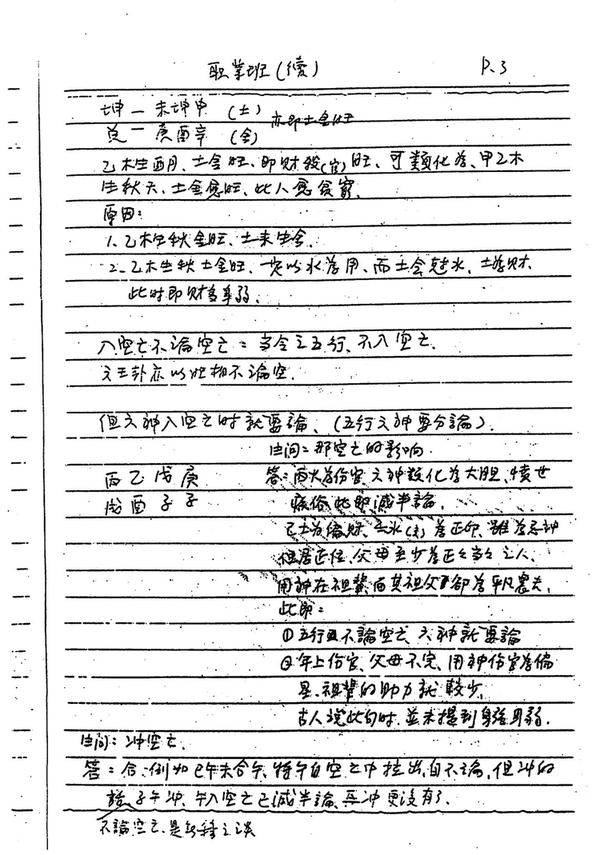 职業班(續) P.3
坤一未坤申 (土) 亦即土金旺
兑一庚酉辛 (金)
乙木生酉月、土金旺、即财殺(官)旺、可類化為、甲乙木
生秋天、土金愈旺、此人愈貧窮.
原因:
1、乙木生秋金旺、土来生金、
2、乙木生秋土金旺、一定以水為用、而土会尅水、土為财、
此時即财多身弱、
入空亡不論空亡=当令之五行、不入空亡.
文王卦亦以旺相不論空.
但六神入空亡时就要論、(五行六神要分論).
生问=那空亡的影响
丙乙戊庚 答=丙火為伤官、六神類化為大胆、憤世
戌酉子子 疾俗此即減半論、
己土為偏财、壬水(子)為正印、雖為忌神
但居正位、父母至少為正正當當之人、
用神在祖輩而其祖父卻為平凡農夫、
此即=
①五行旺不論空亡 六神就要論
②年上伤官、父母不完、用神伤官為偏
星、祖輩的助力就較少、
古人說此句时、並未提到身强身弱.
生问=冲空亡.
答=合、例如巳午未合午、將午自空亡中拉出、自不論、但冲的
話子午冲、午入空亡已減半論、再冲更没有了.
不論空亡、是之談